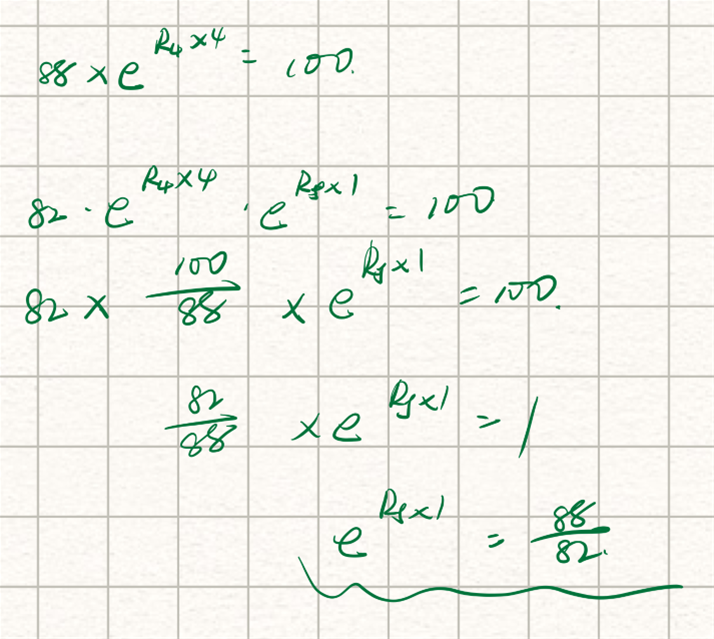 88 × e^{R₄×4} = 100.
82 · e^{R₄×4} · e^{R₅×1} = 100
82 × 100/88 × e^{R₅×1} = 100.
82/88 × e^{R₅×1} = 1
e^{R₅×1} = 88/82.